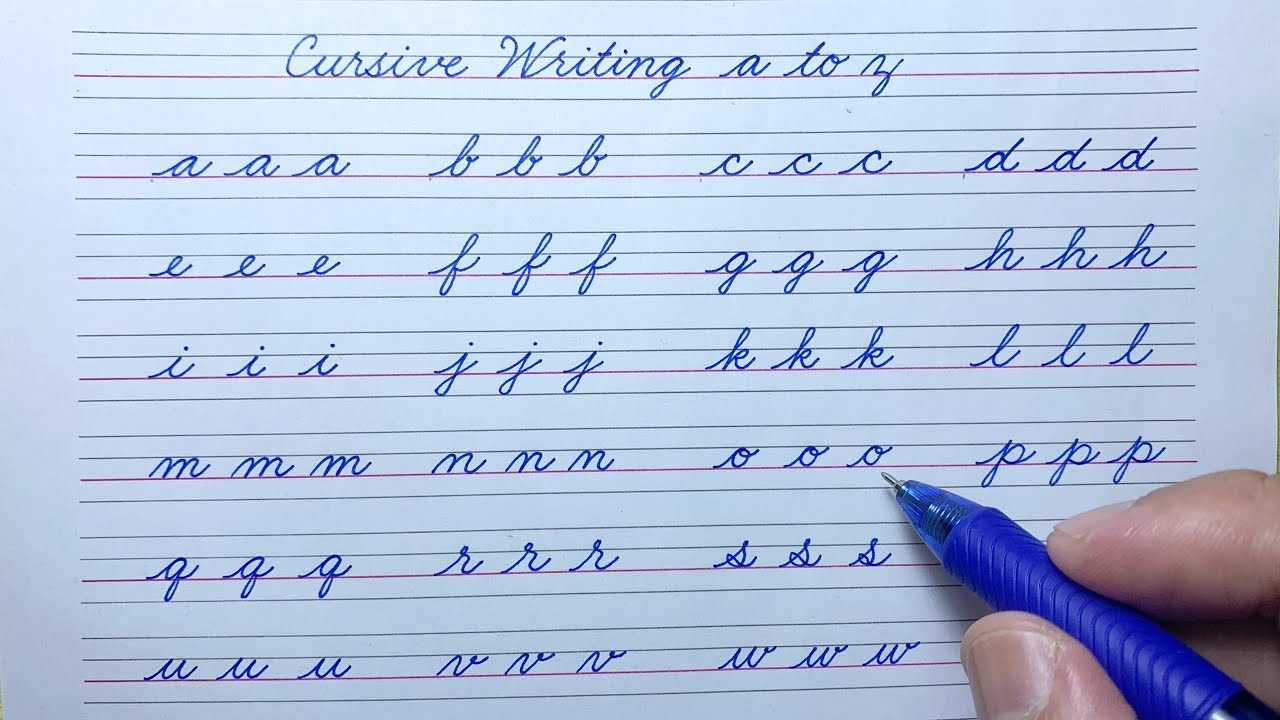 Cursive Writing a to z
a a a b b b c c c d d d
e e e f f f g g g h h h
i i i j j j k k k l l l
m m m n n n o o o p p p
q q q r r r s s s
u u u v v v w w w